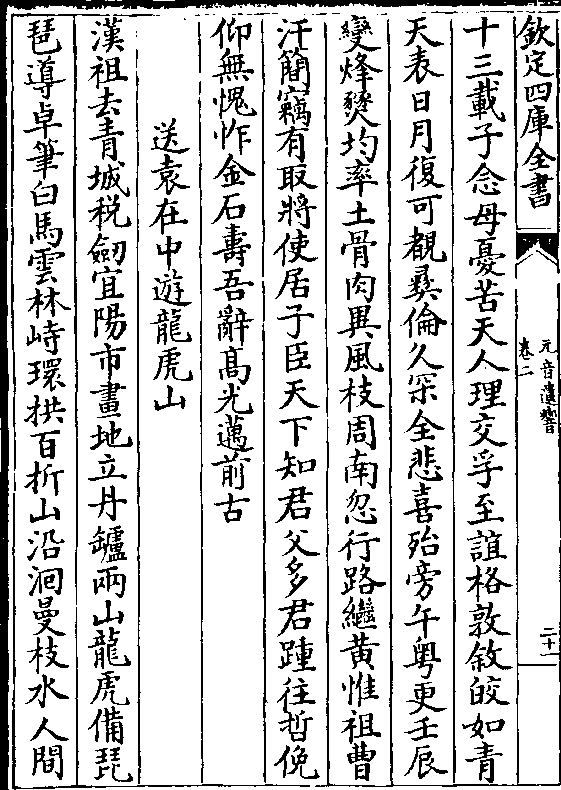 欽定四庫全書
元音遺響
卷二
二十一
十三載子念母憂苦天人理交孚至誼格敦敘皎如青
天表日月復可覩彞倫久罙全悲喜殆旁午粤更壬辰
變烽燹均率土骨肉異風枝周南忽行路繼黄惟祖曹
汗簡竊有取將使居子臣天下知君父多君踵往哲俛
仰無愧怍金石壽吾辭髙光邁前古
送袁在中遊龍虎山
漢祖去青城税劒宜陽市畫地立丹罏兩山龍虎備琵
琶導卓筆白馬雲林峙環拱百折山沿洄曼枝水人間